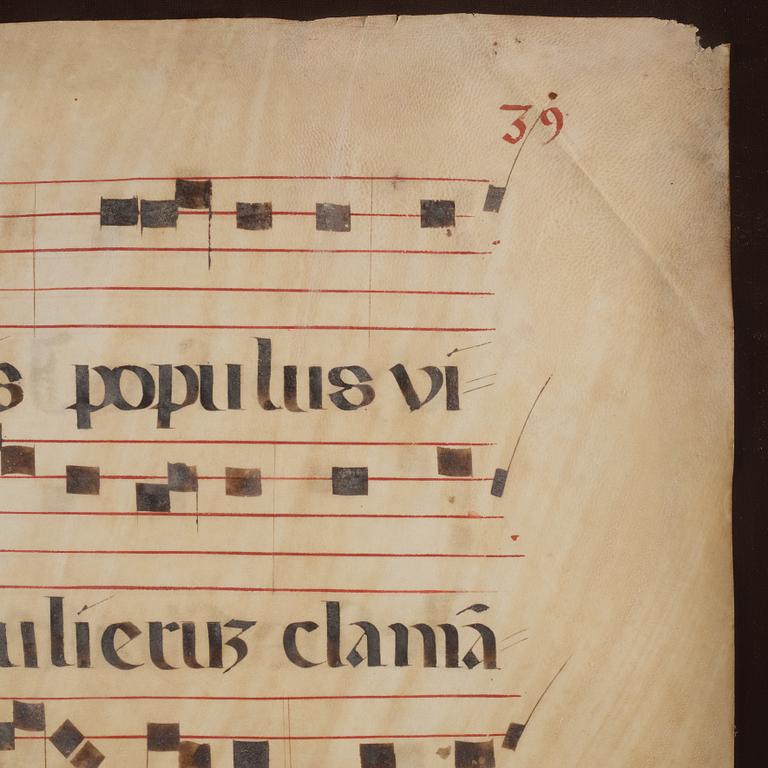 39
s populus vi
ulieruꝫ clamā